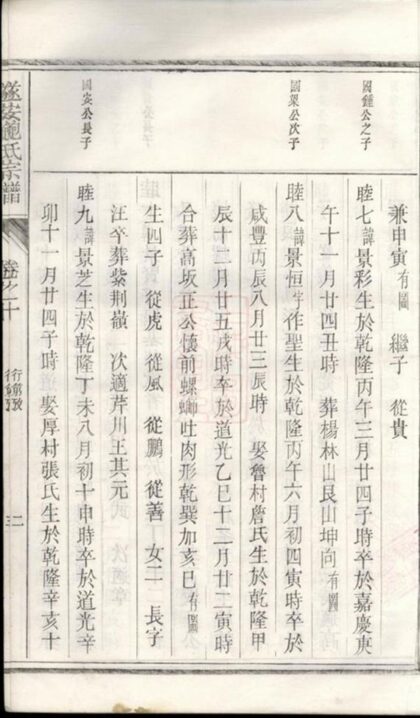 兼申寅有圖　繼子　從貴
國鍾公之子
睦七諱景彩生於乾隆丙午三月廿四子時卒於嘉慶庚
午十一月廿四丑時　葬楊林山艮山坤向有圖
國梁公次子
睦八諱景恒字作聖生於乾隆丙午六月初四寅時卒於
咸豐丙辰八月廿三辰時　娶魯村詹氏生於乾隆甲
辰十二月廿五戌時卒於道光乙巳十二月廿二寅時
合葬高坂正公懷前螺螄吐肉形乾巽加亥巳有圖
生四子　從虎　從風　從鵬　從善　女二　長字
汪卒葬紫荊嶺　次適芹川王其元
國安公長子
睦九諱景芝生於乾隆丁未八月初十申時卒於道光辛
卯十一月廿四子時　娶厚村張氏生於乾隆辛亥十
遂安鮑氏宗譜
卷之十